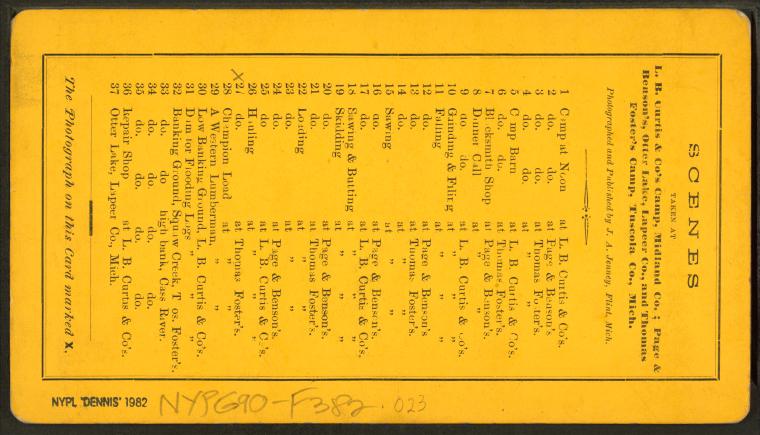 SCENES
TAKEN AT
L. B. Curtis & Co's Camp, Midland Co.; Page &
Benson's, Otter Lake, Lapeer Co., and Thomas
Foster's Camp, Tuscola Co., Mich.
Photographed and Published by J. A. Jenney, Flint, Mich.
1 Camp at Noon at L. B. Curtis & Co's.
2 do. do. at Page & Benson's
3 do. do. at Thomas Foster's.
4 do. do. at " "
5 Camp Barn at L. B. Curtis & Co's
6 do. do. at Thomas Foster's.
7 Blacksmith Shop at Page & Benson's.
8 Dinner Call at " "
9 do. do. at L. B. Curtis & Co's.
10 Grinding & Filing at " "
11 Falling at " "
12 do. at Page & Benson's
13 do. at Thomas Foster's.
14 do. at " "
15 Sawing at " "
16 do. at Page & Benson's.
17 do. at L. B. Curtis & Co's.
18 Sawing & Butting at " "
19 Skidding at " "
20 do. at Page & Benson's.
21 do. at Thomas Foster's.
22 Loading at " "
23 do. at " "
24 do. at Page & Benson's.
25 do. at L. B. Curtis & Co's.
26 Hauling at " "
X 27 do. at Thomas Foster's.
28 Champion Load at " "
29 A Western Lumberman, " "
30 Low Banking Ground, L. B. Curtis & Co's.
31 Dam for Flooding Logs " "
32 Banking Ground, Squaw Creek, Thos. Foster's.
33 do. do high bank, Cass River.
34 do. do. do. do.
35 do. do. do. do.
36 Repair Shop at L. B. Curtis & Co's.
37 Otter Lake, Lapeer Co., Mich.
The Photograph on this Card marked X.
NYPL "DENNIS" 1982
NYPG90-F382.023